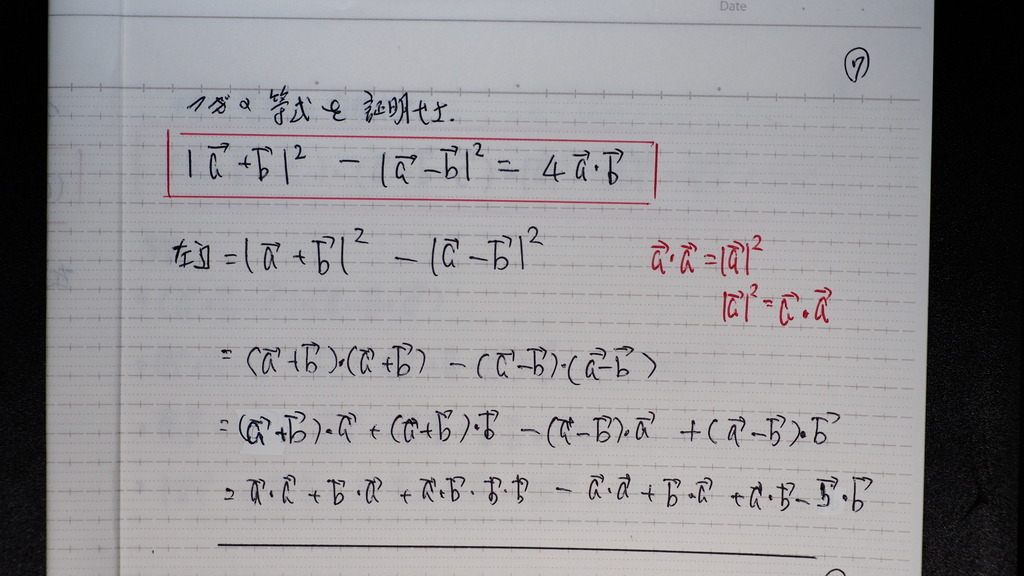 Date
⑦
次の等式を証明せよ.
|a⃗+b⃗|² - |a⃗-b⃗|² = 4a⃗·b⃗
左辺 = |a⃗+b⃗|² - |a⃗-b⃗|²
a⃗·a⃗ = |a⃗|²
|a⃗|² = a⃗·a⃗
= (a⃗+b⃗)·(a⃗+b⃗) - (a⃗-b⃗)·(a⃗-b⃗)
= (a⃗+b⃗)·a⃗ + (a⃗+b⃗)·b⃗ - (a⃗-b⃗)·a⃗ + (a⃗-b⃗)·b⃗
= a⃗·a⃗ + b⃗·a⃗ + a⃗·b⃗ · b⃗·b⃗ - a⃗·a⃗ + b⃗·a⃗ + a⃗·b⃗ - b⃗·b⃗